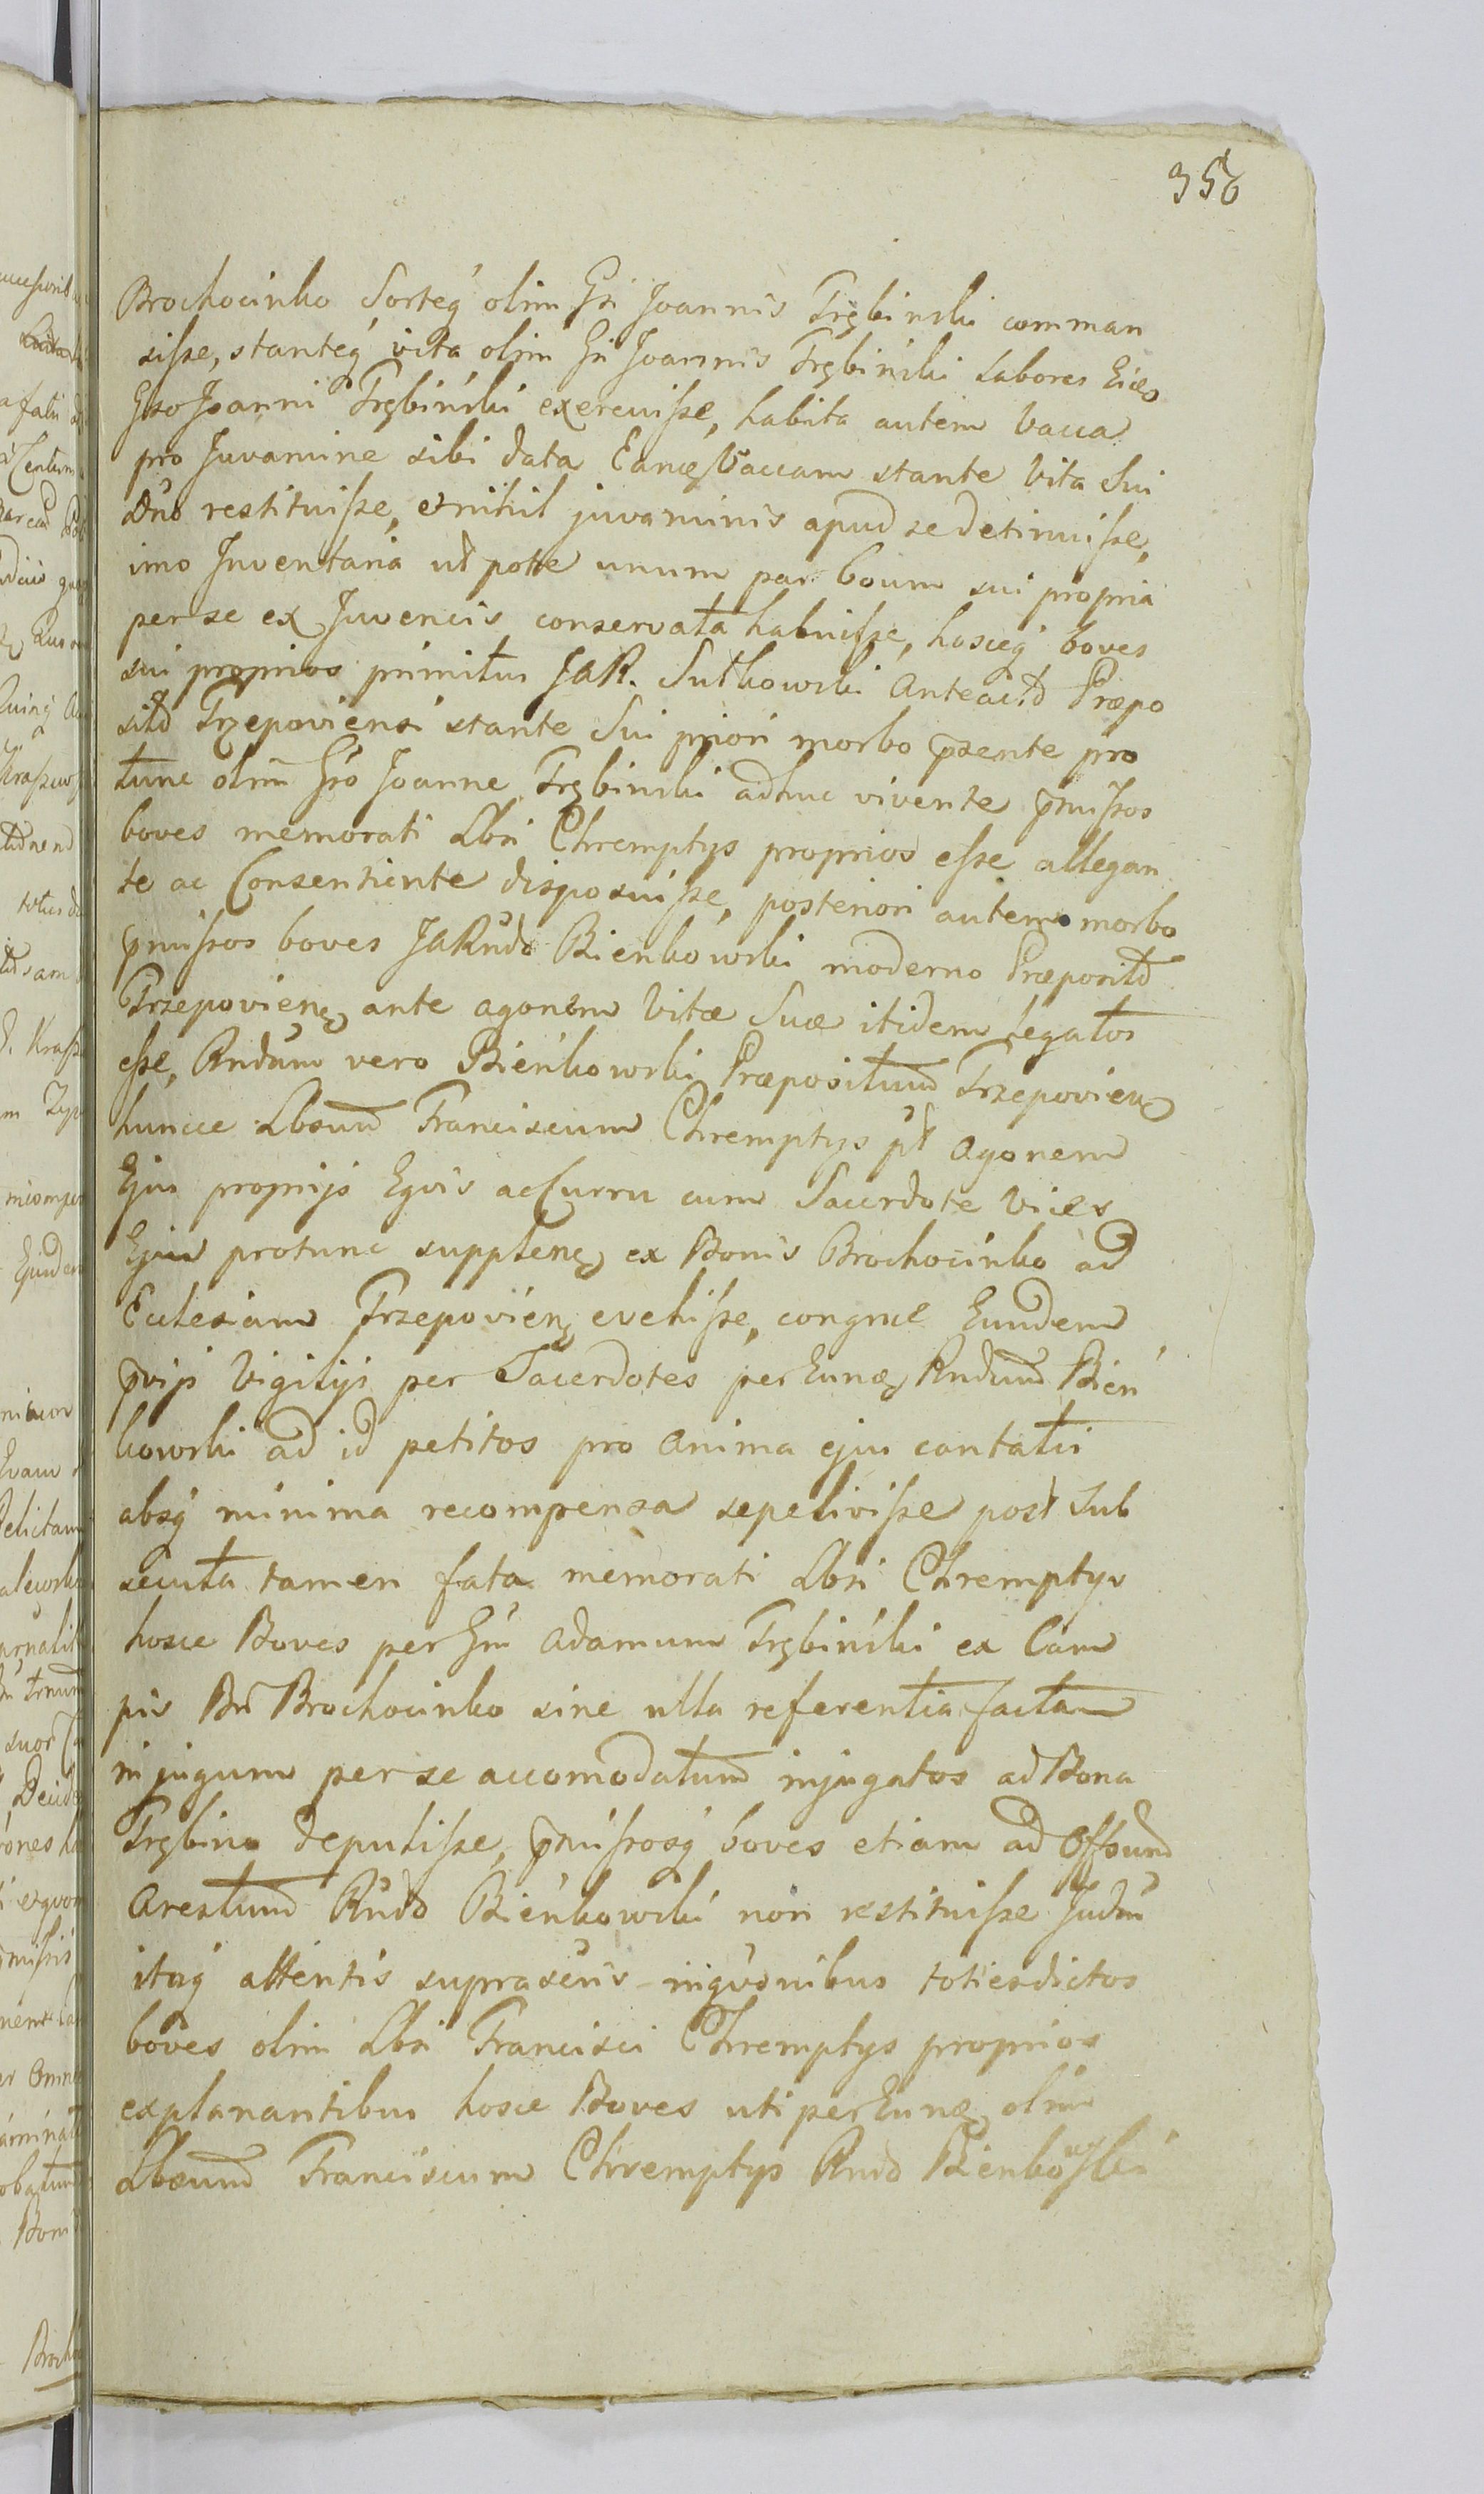 356
Brochocinko Sorteq olim Gsi Joannis Trębinski comman
sisse, stanteq vita olim Gsi Joannis Trębinski Labores
Gsso Joanni Trębinski exercuisse, habita autem Vacca
pro Juvamine sibi data Vaccam stante Vita Sui
Dno restituisse, et nihil juvaminis apud se detinuisse,
imo Inventaria utpote unum par boum sui propria
per se ex Juvencis conservata habuisse, hosceq boves
sui proprios primitus JAR. Sutkowski Anteacto Præpo
sito Trzepoviensi stante Sui priori morbo pnsente pro
tunc olim Gso Joanne Trębinski adhuc vivente pmissos
boves memorati Lbsi Chremptys proprios esse allegan
te ac Consentiente disposuisse, posteriori autem morbo
pmissos boves JARndo Bienkowski moderno Præposito
Trzepovien ante agonem Vitæ Suæ itidem Legatos
esse, Rndum vero Bienkowski Præpositum Trzepovien
huncce Lbsum Franciscum Chremptys pt agonem
Ejus propriis Eqvis ac Curru cum Sacerdote Vices
Ejus protunc supplen ex Bonis Brochocinko ad
Eclesiam Trzepovien evehisse, congrue Eundem
pviis Vigilijs per Sacerdotes per Rndum Bień
kowski ad id petitos pro Anima ejus cantatis
absq minima recompensa sepelivisse post Sub
secuta tamen fata memorati Lbsi Chremptys
hosce Boves per Gm Adamum Trębinski ex Cam
pis Bn Brochocinko sine ulla referentia facta
in jugum per se accomodatum injugatos ad Bona
Trębino depulisse, pmissosq boves etiam ad Offsum
Arestum Rndo Bienkowski non restituisse Judm
itaq attentis suprascris inqvonibus totiesdictos
boves olim Lbsi Francisci Chremptys proprios
explanantibus hosce Boves uti per olim
Lbsum Franciscum Chremptys Rndo Bienkowski